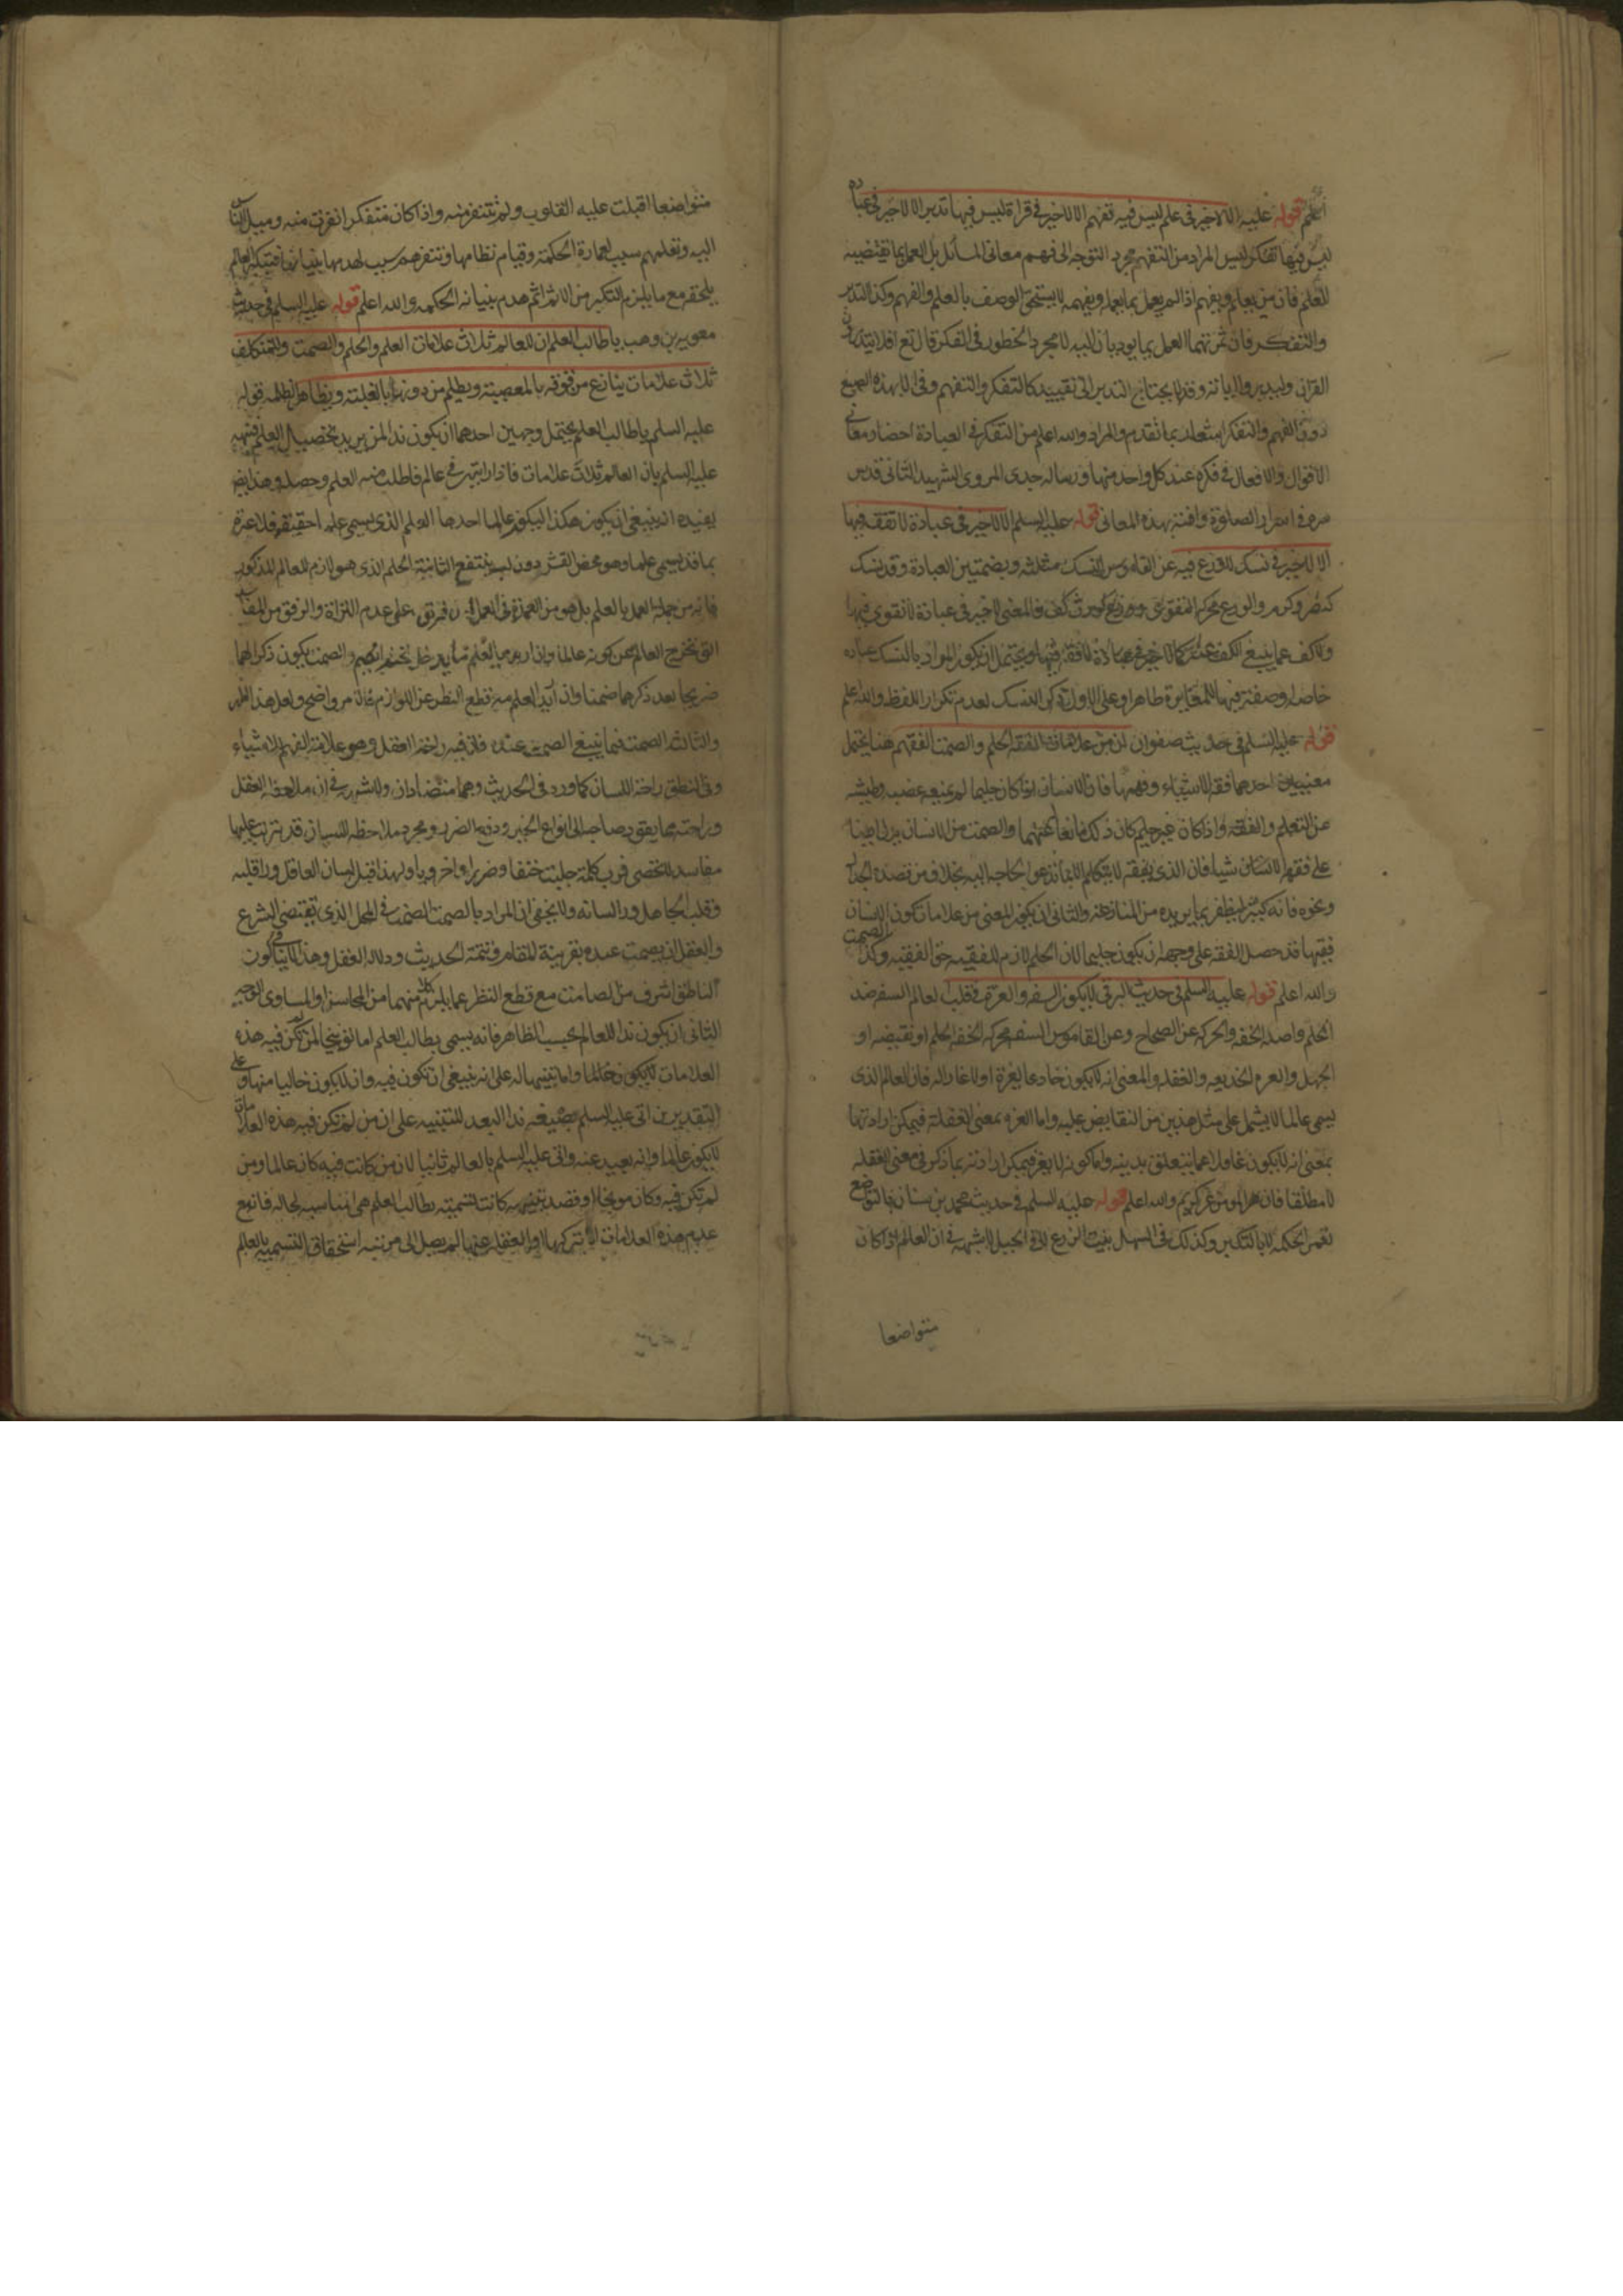 اعلم قوله عليه الا لا خير فى علم ليس فيه تفهم الا لا خير فى قراءة ليس فيها تدبر الا لا خير فى عبادة
ليس فيها تفكر ليس المراد من التفهم مجرد التوجه الى فهم معانى المسائل بل العمل بما تقتضيه
العلم فان من يعلم ويفهم اذا لم يعمل بما يعلمه ويفهمه لا يستحق الوصف بالعلم والفهم وكذا التدبر
والتفكر فان ثمرتهما العمل بما يؤديان اليه لا مجرد الخطور فى الفكر قال تع افلا يتدبرون
القران وليدبروا اياته وقد لا يحتاج التدبر الى تقييد كالتفكر والتفهم وفى الا بهذه الصيغ
دون الفهم والفكر اشعار بما تقدم والمراد والله اعلم من التفكر فى العبادة احضار معانى
الاقوال والافعال فى فكره عند كل واحد منها ورسالة جدى المروى الشهيد الثانى قدس
سره فى اسرار الصلوة وافية بهذه المعانى قوله عليه السلم الا لا خير فى عبادة لا تفقه فيها
الا لا خير فى نسك لا ورع فيه عن القاموس النسك مثلثه وبضمتين العبادة وقد نسك
كنصر وكرم والورع محركة التقوى وورع كورث كف والمعنى لا خير فى عبادة لا تقوى فيها
ولا كف عما ينبغى الكف عنه كما لا خير فى عبادة لا فقه فيها ويحتمل ان يكون المراد بالنسك عبادة
خاصة وصفته فيها المغايرة ظاهرا وعلى الاول ذكر النسك لعدم تكرار اللفظ والله اعلم
قوله عليه السلم فى حديث صفوان ان من علامات الفقه الحلم والصمت الفقهم هنا يحتمل
معنيين احدهما فقه الاشياء وفهمها فان الانسان اذا كان حليما لم يمنعه غضبه وطيشه
عن التعلم والفقه واذا كان غير حليم كان ذلك مانعا عنهما والصمت من الانسان يدل ايضا
على فقه الانسان شيئا فان الذى يفقه لا يتكلم الا بما تدعو الحاجه اليه بخلاف من قصده الجدال
ونحوه فانه كثيرا يظفر بما يريده من المنازعة والثانى ان يكون المعنى من علامات كون الانسان
فقيها قد حصل الفقه على وجهه ان يكون حليما لان الحلم لازم للفقيه حق الفقيه وكذا الصمت
والله اعلم قوله عليه السلم فى حديث البرقى لا يكون السفه والغرة فى قلب العالم السفه ضد
الحلم واصله الخفه والحركه عن الصحاح وعن القاموس السفه محركه الخفه الحلم او نقيضه او
الجهل والغره الخديعه والغفله والمعنى انه لا يكون خادعا لغرة او لاغارا له فان العالم الذى
يسمى عالما لا يشمل على مثل هذين من النقايض عليه واما الغره بمعنى الغفلة فيمكن ارادتها
بمعنى انه لا يكون غافلا عما يتعلق بدينه واما كونه لا يغر فيمكن ارادته بما ذكر فى معنى الغفله
لا مطلقا فان المؤمن غر كريم والله اعلم قوله عليه السلم فى حديث محمد بن سنان بالتواضع
تعمر الحكمه لا بالتكبر وكذلك فى السهل ينبت الزرع لا فى الجبل لا شبهه فى ان العالم اذا كان
متواضعا
متواضعا اقبلت عليه القلوب ولم تتنفر منه واذا كان متفكرا نفرت منه وميل الناس
اليه وتعلمهم سبب لعمارة الحكمة وقيام نظامها وتنفرهم سبب لهدمها بنيانها فتكبر العالم
يلحقه مع ما يلزم التكبر من الاثم اثم هدم بنيانه الحكمه والله اعلم قوله عليه السلم فى حديث
معويه بن وهب يا طالب العلم ان للعالم ثلاث علامات العلم والحلم والصمت وللمتكلف
ثلاث علامات ينازع من فوقه بالمعصية ويظلم من دونه بالغلبة ويظاهر الظلمه قوله
عليه السلم يا طالب العلم يحتمل وجهين احدهما ان يكون ندا لمن يريد تحصيل العلم فنبهه
عليه السلم بان للعالم ثلاث علامات فاذا رايتها فى عالم فاطلب منه العلم وحصله وهذا ايض
يفيده انه ينبغى ان يكون هكذا ليكون عالما احدها العلم الذى يسمى علما حقيقة فلا عبرة
بما قد يسمى علما وهو محض القشر دون لب ينتفع الثانية الحلم الذى هو لازم للعالم المذكور
فانه من جملة العمل بالعلم بل هو من العمدة فى العمل
التى تخرج العالم عن كونه عالما وان اريد بالعلم ما يدخل تحته الحلم والصمت يكون ذكرهما
صريحا بعد ذكرهما ضمنا وان اريد العلم مع قطع النظر عن اللوازم فالامر واضح ولعل هذا اظهر
والثالث الصمت فيما ينبغى الصمت عنده فان فيه راحة العقل وهو علامة الفهم للاشياء
وفى النطق راحة اللسان كما ورد فى الحديث وهما متضادان ولا شبهه فى ان ملاحظة العقل
وراحته مما يقود صاحبه الى انواع الخير ودفع الضرر ومجرد ملاحظة اللسان قد يترتب عليها
مفاسد لا تحصى فرب كلمة جلبت حتفا وضررا واخرويا ولهذا قيل لسان العاقل وراء قلبه
وقلب الجاهل وراء لسانه ولا يخفى ان المراد بالصمت الصمت فى المحل الذى يقتضى الشرع
والعقل ان يصمت عنده بقرينة المقام وتتمة الحديث ودلالة العقل وهذا لا ينافى كون
الناطق اشرف من الصامت مع قطع النظر عما يلزم كلا منهما من المحاسن او المساوى الوجه
الثانى ان يكون ندا للعالم بحسب الظاهر فانه يسمى بطالب العلم اما توبيخا لمن لم تكن فيه هذه
العلامات لا يكون عالما واما تنبيها له على انه ينبغى ان تكون فيه وان لا يكون خاليا منها وعلى
التقديرين اتى عليه السلم بصيغة ندا البعيد للتنبيه على ان من لم تكن فيه هذه العلامات
لا يكون عالما وانه بعيد عنه واتى عليه السلم بالعالم ثانيا لان من كانت فيه كان عالما ومن
لم تكن فيه وكان موبخا او قصد تنبيهه كانت تسميته بطالب العلم هى مناسبه لحاله فانه مع
عدم هذه العلامات لتركها او الغفلة عنها لم يصل الى مرتبة استحقاق التسمية بالعالم